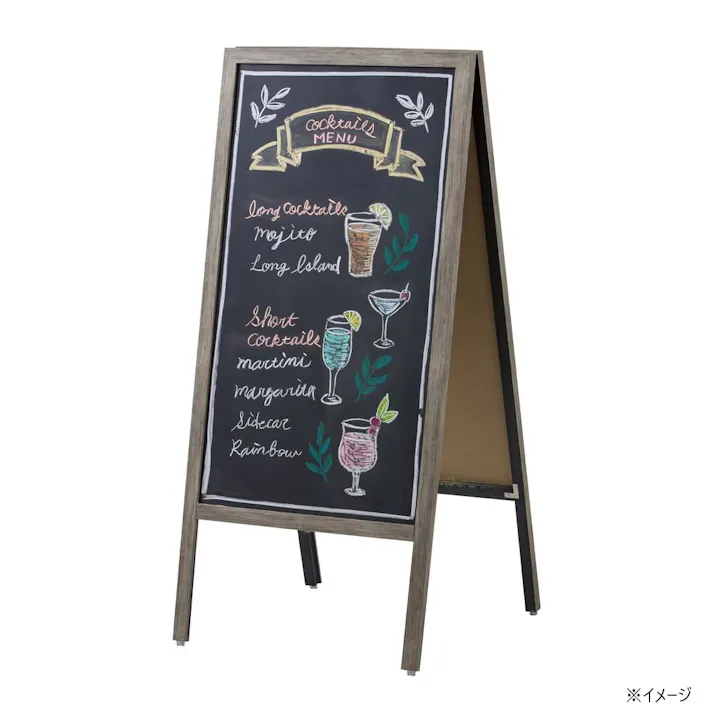 Cocktails
MENU
Long Cocktails
Mojito
Long Island
Short
Cocktails
martini
margarita
Sidecar
Rainbow
※イメージ